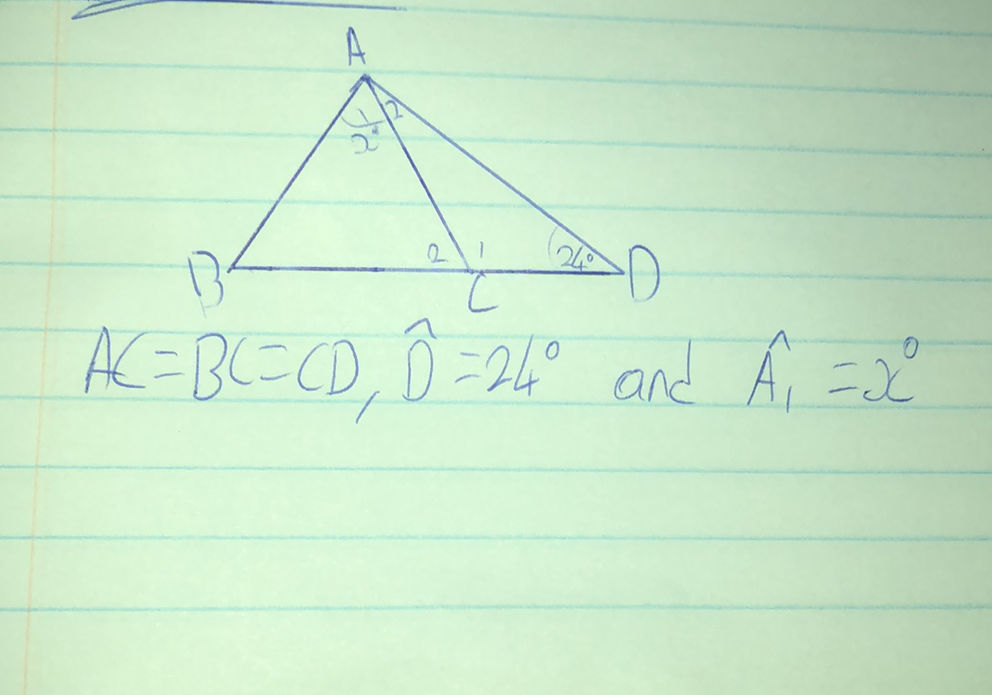 A
1 2
x°
B 2 1 24° D
C
AC=BC=CD, D̂=24° and Â₁ =x°